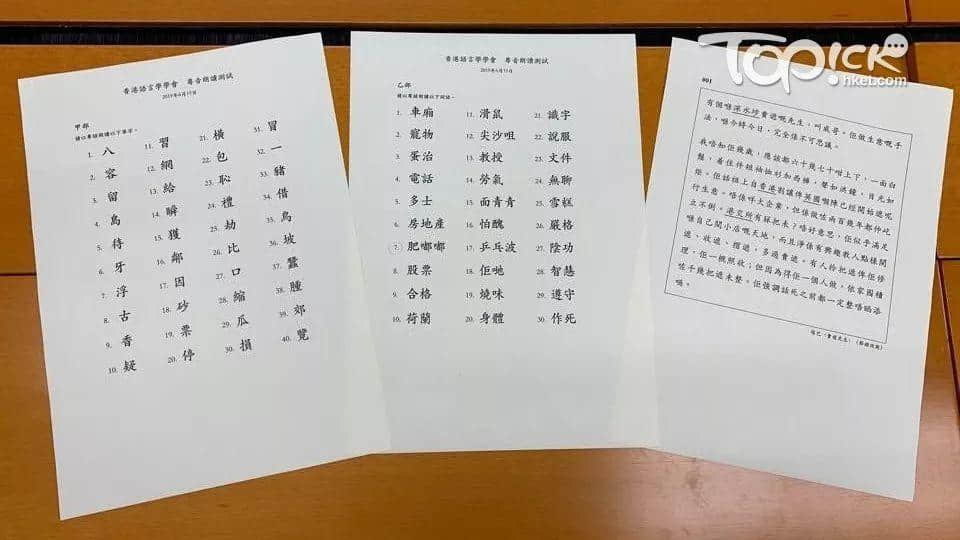 TOPICK
hket.com
香港語言學學會 粵音朗讀測試
2019年6月15日
甲部
請以粵語朗讀以下單字。
1. 八 11. 習 21. 橫 31. 冒
2. 容 12. 網 22. 包 32. 一
3. 留 13. 給 23. 恥 33. 豬
4. 島 14. 瞬 24. 禮 34. 借
5. 待 15. 獲 25. 劫 35. 鳥
6. 牙 16. 鄰 26. 比 36. 坡
7. 浮 17. 因 27. 口 37. 蠶
8. 古 18. 砂 28. 縮 38. 腫
9. 香 19. 票 29. 瓜 39. 郊
10. 疑 20. 停 30. 損 40. 覽
香港語言學學會 粵音朗讀測試
2019年6月15日
乙部
請以粵語朗讀以下詞語。
1. 車廂 11. 滑鼠 21. 識字
2. 寵物 12. 尖沙咀 22. 說服
3. 蛋治 13. 教授 23. 文件
4. 電話 14. 勞氣 24. 無聊
5. 多士 15. 面青青 25. 雪糕
6. 房地產 16. 怕醜 26. 嚴格
7. 肥嘟嘟 17. 乒乓波 27. 陰功
8. 股票 18. 佢哋 28. 智慧
9. 合格 19. 燒味 29. 遵守
10. 荷蘭 20. 身體 30. 作死
001
有個喺深水埗賣遮嘅先生,叫威哥。佢做生意嘅手
法,喺今時今日,完全係不可思議。
我唔知佢幾歲,應該都六十幾七十咁上下,一面白
鬚,着住件短袖恤衫加西褲,聲如洪鐘,目光如
炬。佢話祖上自香港割讓俾英國嗰陣已經開始遮呢
行生意。唔係咩大企業,但係做咗兩百幾年都仲屹
立不倒。港交所有冧把未?唔好意思,佢似乎滿足
喺自己間小店嘅天地,而且淨係有興趣教人點樣開
遮、收遮、摺遮,多過賣遮。有人拎把遮俾佢修
理,佢一概照收;但因為得佢一個人做,依家囤積
咗千幾把遮未整。佢強調話死之前都一定整唔晒添
喎。